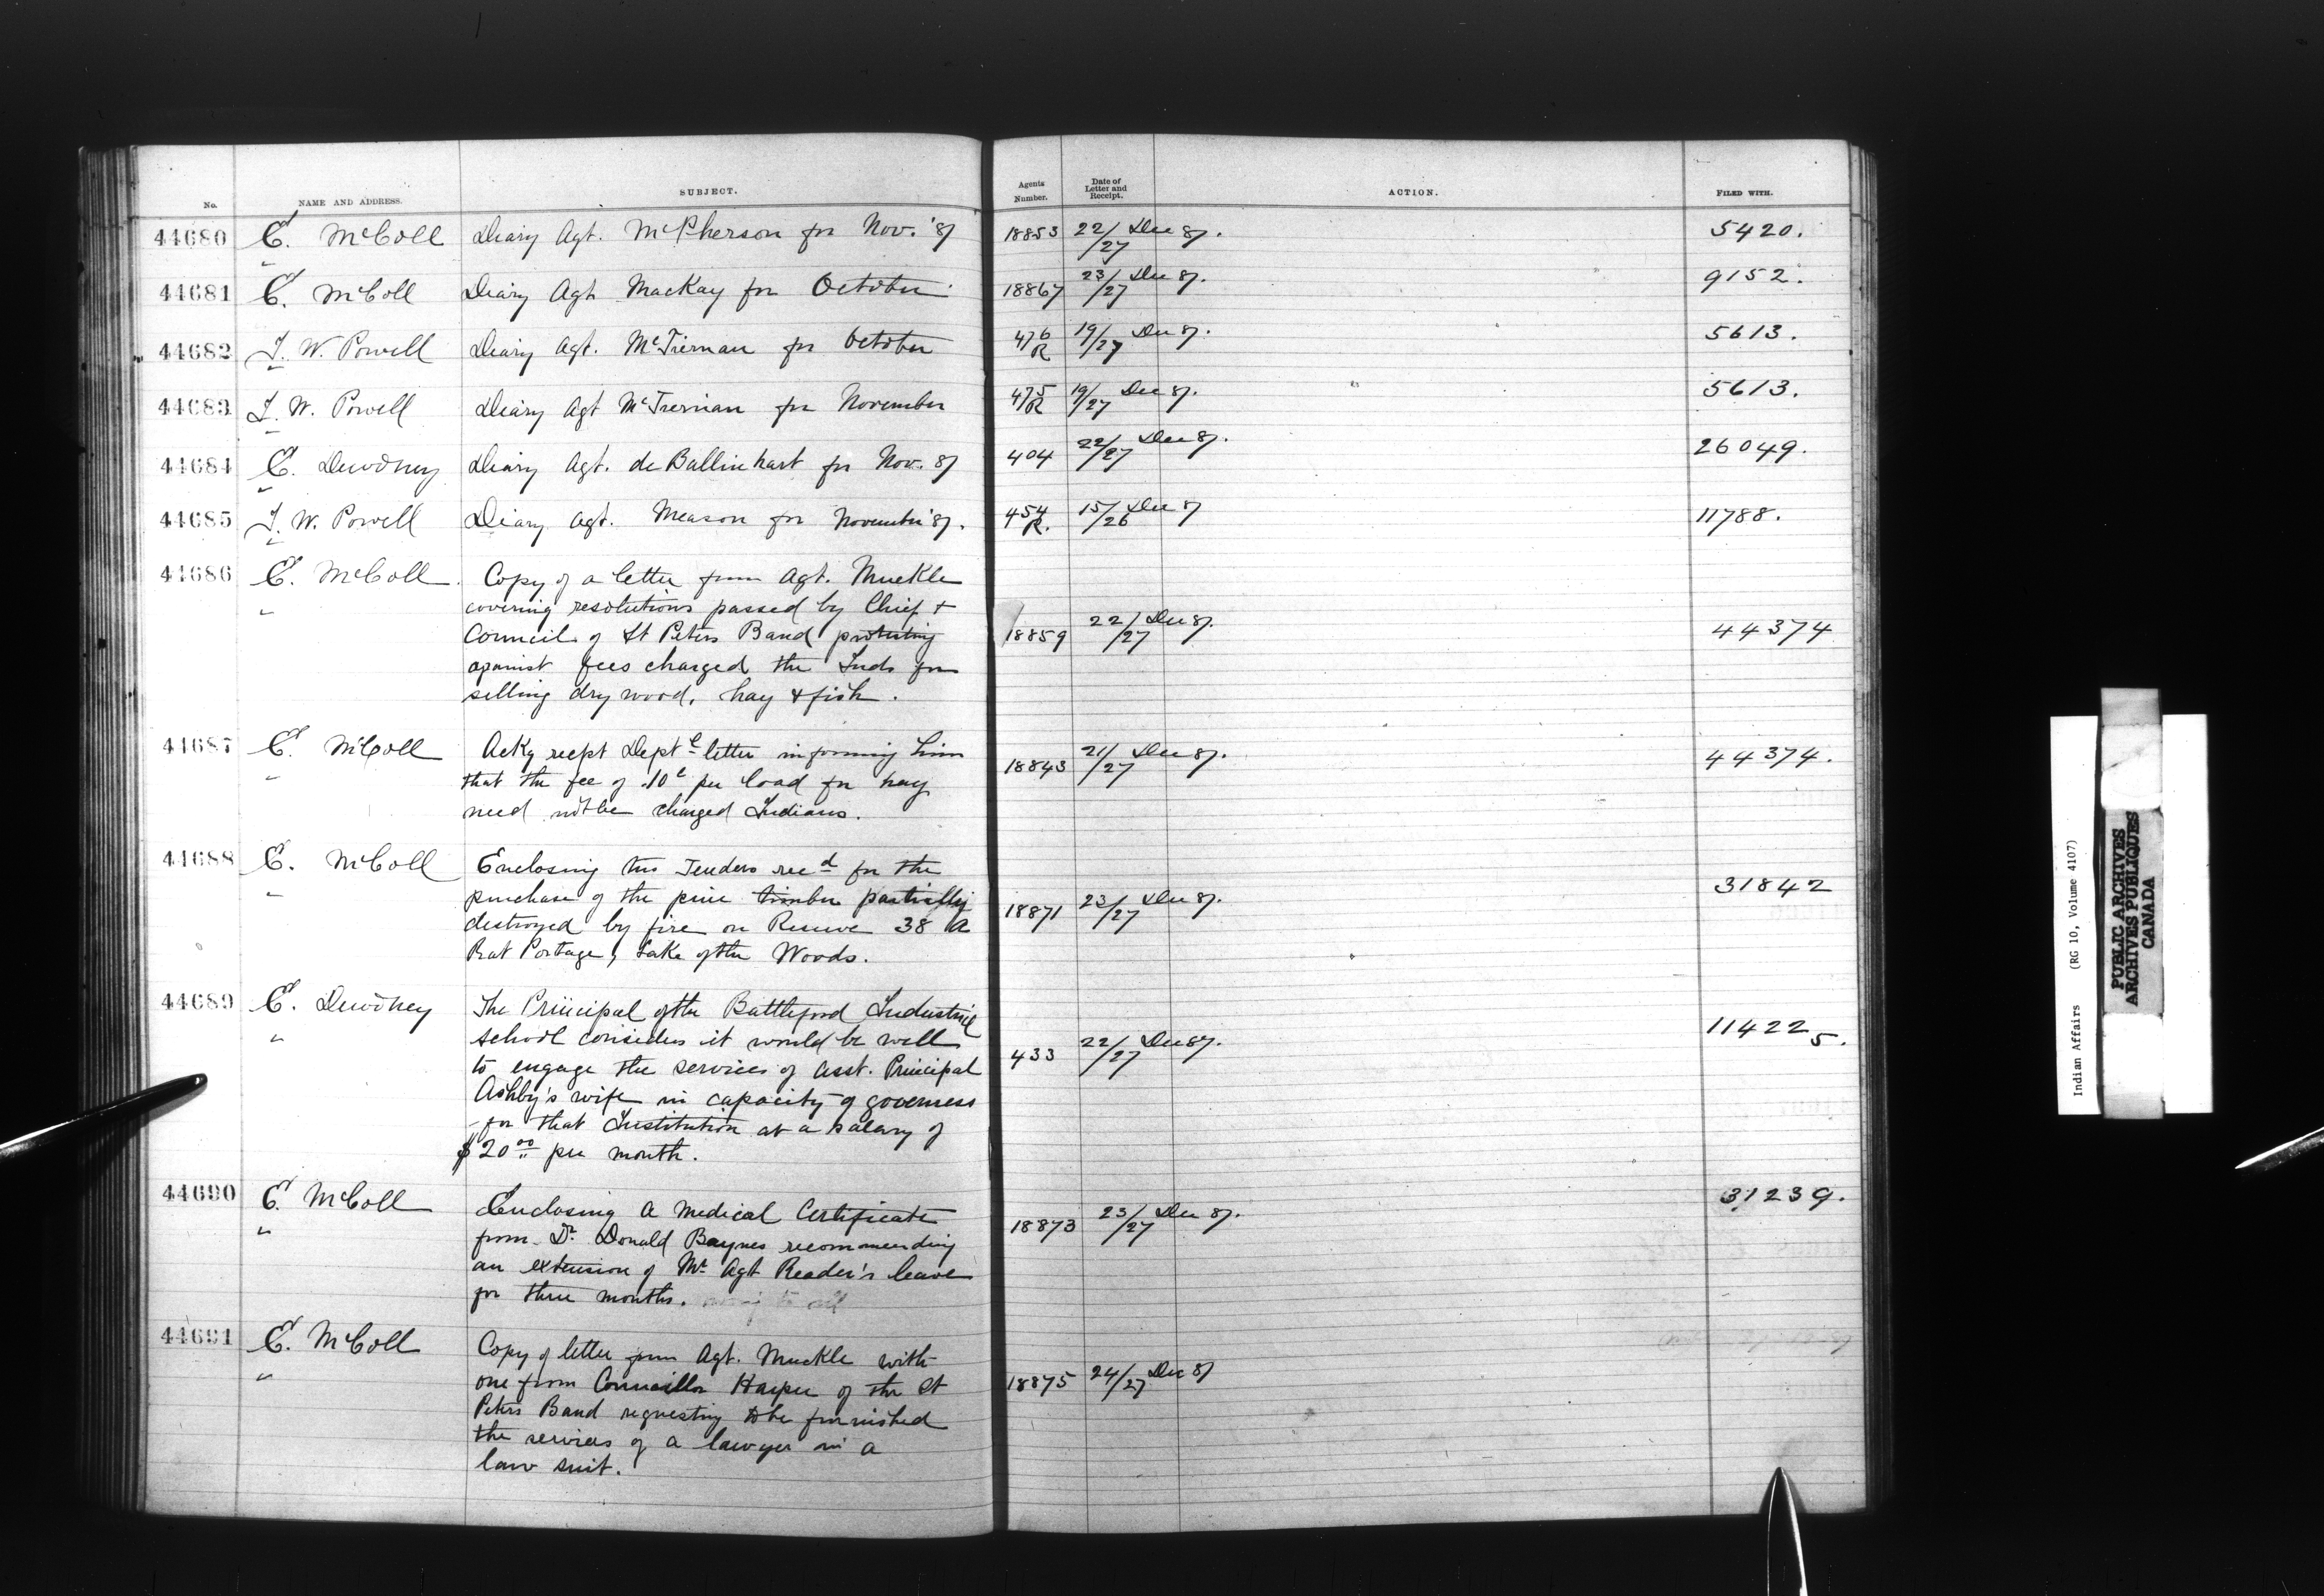 No. NAME AND ADDRESS. SUBJECT. Agents Number. Date of Letter and Receipt. ACTION. FILED WITH.
44680 E. McColl Diary Agt. McPherson for Nov. '87 18853 22/27 Dec 87. 5420.
44681 E. McColl Diary Agt. MacKay for October 18867 23/27 Dec 87. 9152.
44682 I. W. Powell Diary Agt. McTiernan for October 476 R 19/27 Dec 87. 5613.
44683 I. W. Powell Diary Agt McTiernan for November 475 R 19/27 Dec 87. 5613.
44684 E. Dewdney Diary Agt. de Ballinhart for Nov. 87 404 22/27 Dec 87. 26049.
44685 I. W. Powell Diary Agt. Meason for November '87. 454 R. 15/26 Dec 87 11788.
44686 E. McColl Copy of a letter from Agt. Muckle
covering resolutions passed by Chief +
Council of St Peters Band protesting 18859 22/27 Dec 87. 44374
against fees charged the Inds for
selling dry wood, hay + fish.
44687 E. McColl Ackg recpt Deptl letter informing him 18843 21/27 Dec 87. 44374.
that the fee of .10c per load for hay
need not be charged Indians.
44688 E. McColl Enclosing two Tenders recd for the
purchase of the pine timber partially 18871 23/27 Dec 87. 31842
destroyed by fire on Reserve 38 A
Rat Portage, Lake of the Woods.
44689 E. Dewdney The Principal of the Battleford Industrial
School considers it would be well 433 22/27 Dec 87. 11422 5.
to engage the services of Asst. Principal
Ashby's wife in capacity of governess
for that Institution at a salary of
$20.00 per month.
44690 E. McColl Enclosing a Medical Certificate 18873 23/27 Dec 87. 31239.
from Dr Donald Baynes recommending
an extension of Mr Agt Reader's leave
for three months.
44691 E. McColl Copy of letter from Agt. Muckle with
one from Councillor Harper of the St 18875 24/27 Dec 87
Peters Band requesting to be furnished
the services of a lawyer in a
law suit.
Indian Affairs (RG 10, Volume 4107)
PUBLIC ARCHIVES
ARCHIVES PUBLIQUES
CANADA